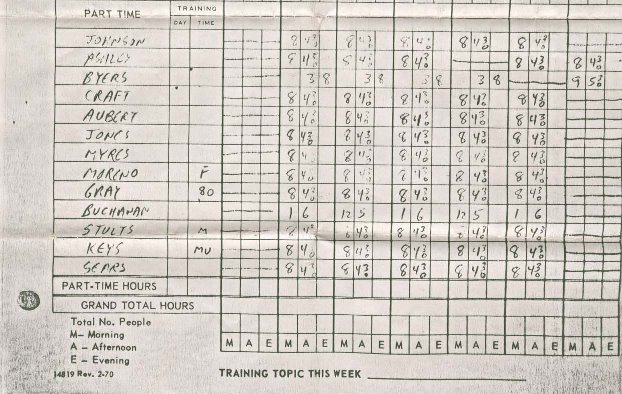 PART TIME TRAINING
DAY TIME
JOHNSON 8 4³⁰ 8 4³⁰ 8 4³⁰ 8 4³⁰ 8 4³⁰
8 4³⁰ 8 4³⁰ 8 4³⁰ 8 4³⁰ 8 4³⁰
BYERS 3 8 3 8 3 8 3 8 9 5³⁰
CRAFT 8 4³⁰ 8 4³⁰ 8 4³⁰ 8 4³⁰ 8 4³⁰
AUBERT 8 4³⁰ 8 4³⁰ 8 4³⁰ 8 4³⁰ 8 4³⁰
JONES 8 4³⁰ 8 4³⁰ 8 4³⁰ 8 4³⁰ 8 4³⁰
MYRES 8 4³⁰ 8 4³⁰ 8 4³⁰ 8 4³⁰ 8 4³⁰
MORENO F 8 4³⁰ 8 4³⁰ 8 4³⁰ 8 4³⁰ 8 4³⁰
GRAY 80 8 4³⁰ 8 4³⁰ 8 4³⁰ 8 4³⁰ 8 4³⁰
BUCHANAN 1 6 12 5 1 6 12 5 1 6
STULTS M 8 4³⁰ 8 4³⁰ 8 4³⁰ 8 4³⁰ 8 4³⁰
KEYS MU 8 4³⁰ 8 4³⁰ 8 4³⁰ 8 4³⁰ 8 4³⁰
SEARS 8 4³⁰ 8 4³⁰ 8 4³⁰ 8 4³⁰ 8 4³⁰
PART-TIME HOURS
GRAND TOTAL HOURS
Total No. People
M— Morning
A — Afternoon
E — Evening
M A E M A E M A E M A E M A E M A E M A E
14819 Rev. 2-70
TRAINING TOPIC THIS WEEK